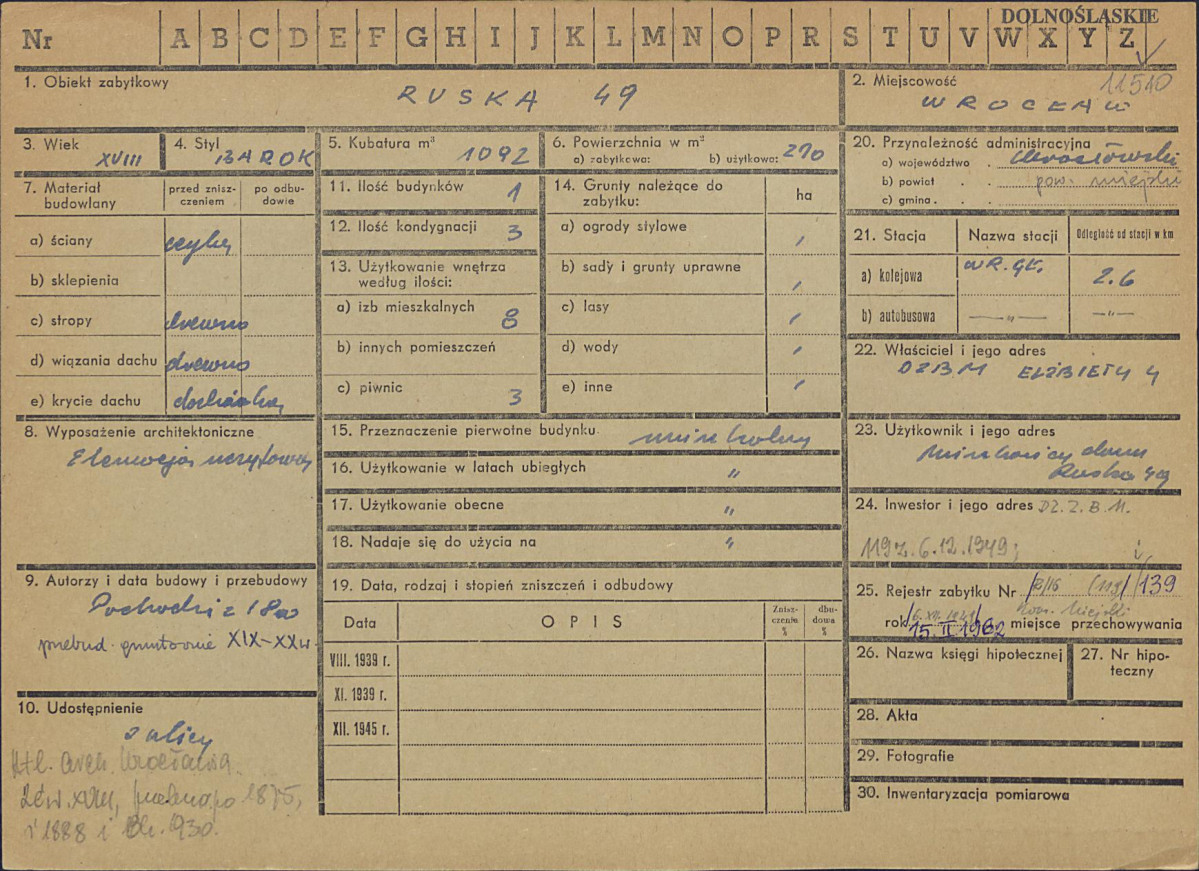 DOLNOŚLĄSKIE
Nr A B C D E F G H I J K L M N O P R S T U V W X Y Z
11510
1. Obiekt zabytkowy
RUSKA 49
2. Miejscowość
WROCŁAW
3. Wiek
XVIII
4. Styl
BAROK
5. Kubatura m³
1092
6. Powierzchnia w m²
a) zabytkowa: b) użytkowa: 270
7. Materiał budowlany
przed zniszczeniem
po odbudowie
a) ściany cegła
b) sklepienia
c) stropy drewno
d) wiązania dachu drewno
e) krycie dachu dachówka
8. Wyposażenie architektoniczne
Elewacja szczytowa
9. Autorzy i data budowy i przebudowy
Pochodzi z 18w
przebud. gruntownie XIX-XXw.
10. Udostępnienie
z ulicy
Atl. arch. Wrocławia.
2 ćw. XVIII, przebud. po 1875,
i 1888 i 1930.
11. Ilość budynków 1
12. Ilość kondygnacji 3
13. Użytkowanie wnętrza
według ilości:
a) izb mieszkalnych 8
b) innych pomieszczeń
c) piwnic 3
14. Grunty należące do
zabytku:
ha
a) ogrody stylowe
b) sady i grunty uprawne
c) lasy
d) wody
e) inne
15. Przeznaczenie pierwotne budynku mieszkalny
16. Użytkowanie w latach ubiegłych "
17. Użytkowanie obecne "
18. Nadaje się do użycia na "
19. Data, rodzaj i stopień zniszczeń i odbudowy
Data OPIS Zniszczenia % dbudowa %
VIII. 1939 r.
XI. 1939 r.
XII. 1945 r.
20. Przynależność administracyjna
a) województwo . Wrocławski
b) powiat . . pow. miejski
c) gmina . .
21. Stacja Nazwa stacji Odległość od stacji w km
a) kolejowa WR. GŁ. 2.6
b) autobusowa — " — — " —
22. Właściciel i jego adres
DZBM ELŻBIETY 4
23. Użytkownik i jego adres
Mieszkańcy domu
Ruska 49
24. Inwestor i jego adres DZ. Z. B. M.
119 z. 6.12.1949;
25. Rejestr zabytku Nr (119) 139
rok 15. II 1962 miejsce przechowywania
26. Nazwa księgi hipotecznej
27. Nr hipoteczny
28. Akta
29. Fotografie
30. Inwentaryzacja pomiarowa